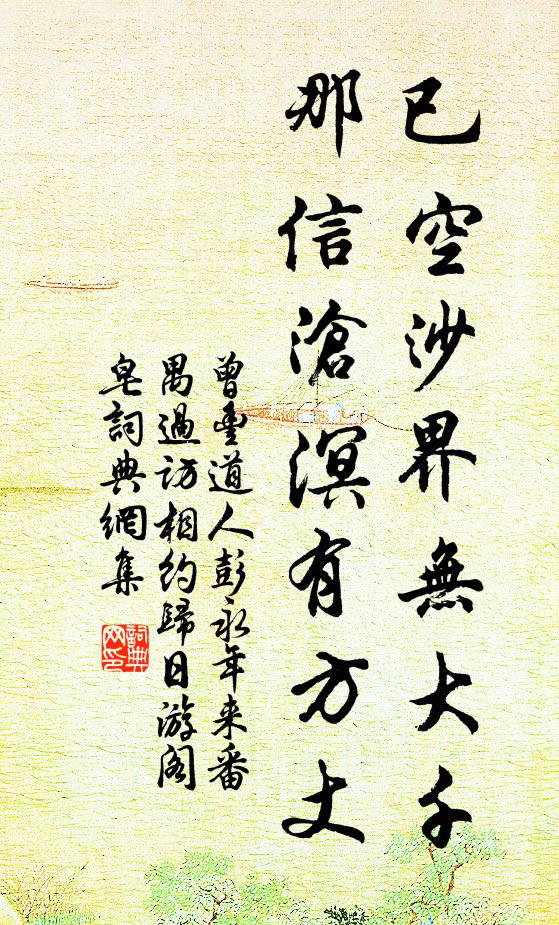 已空沙界無大千
那信滄溟有方丈
曾雲道人彭永年来番
禺過訪相約歸日游閣
皂詞典網集
詞典网印